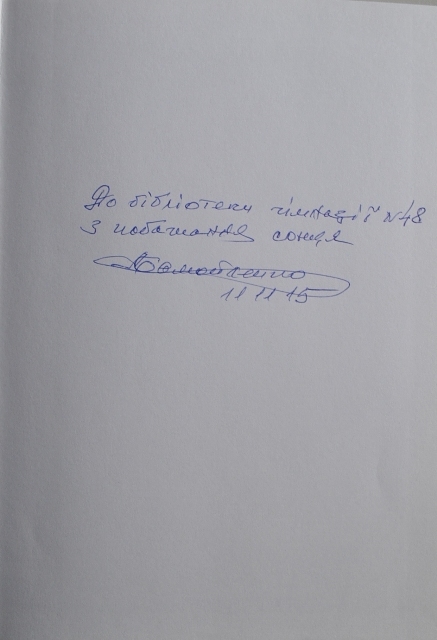 До бібліотеки гімназії №48
З побажання сонця
11 11 15